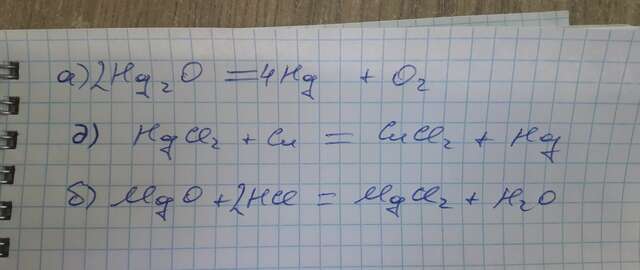 а) 2Hg₂O = 4Hg + O₂
д) HgCl₂ + Cu = CuCl₂ + Hg
б) MgO + 2HCl = MgCl₂ + H₂O